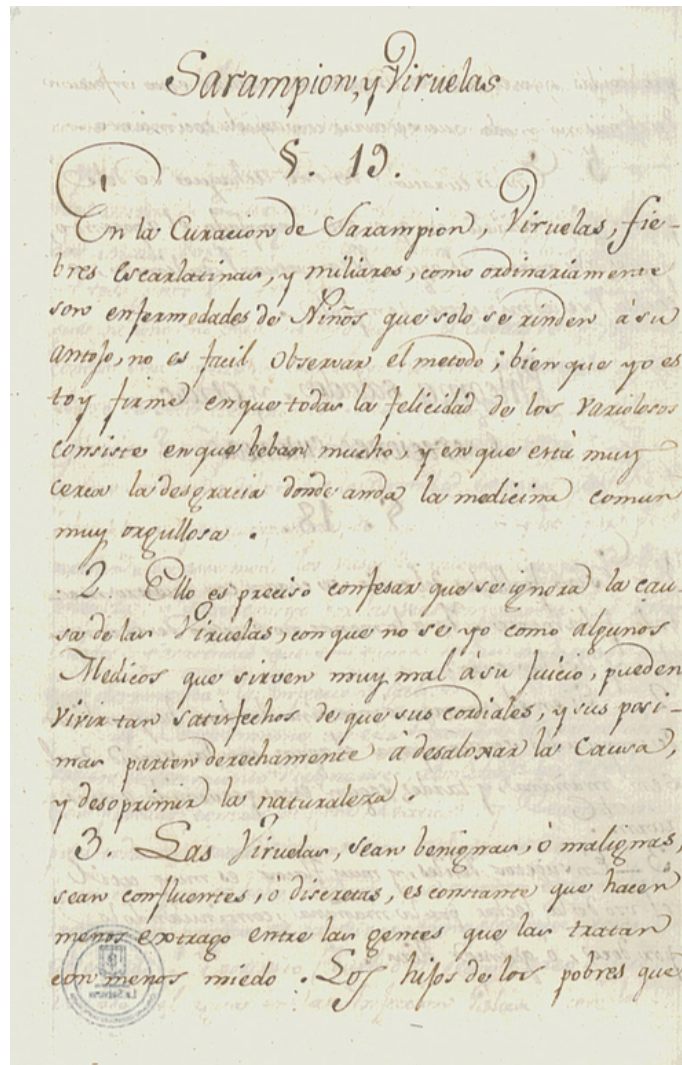 Sarampion, y Viruelas
§. 19.
En la Curacion de Sarampion, Viruelas, fie-
bres Escarlatinas, y miliares, como ordinariamente
son enfermedades de Niños que solo se rinden à su
antojo, no es facil observar el metodo; bien que yo es
toy firme en que toda la felicidad de los Variolosos
consiste en que beban mucho, y en que està muy
cerca la desgracia donde anda la medicina comun
muy orgullosa.
2. Ello es preciso confesar que se ignora la cau-
sa de las Viruelas, con que no se yo como algunos
Medicos que sirven muy mal à su Juicio, pueden
vivir tan satisfechos de que sus cordiales, y sus posi-
mas parten derechamente à desaloxar la Causa,
y desoprimir la naturaleza.
3. Las Viruelas, sean benignas, ò malignas,
sean confluentes, ò discretas, es constante que hacen
menos extrago entre las gentes que las tratan
con menos miedo. Los hijos de los pobres que